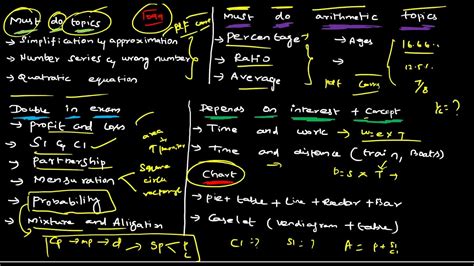 Must do topics
→ Simplification & approximation
→ Number series & wrong number
→ Quatratic equation
must do arithmetic topics
→ Percentage
→ Ratio
→ Average
→ Ages
16.66..
12.5%
7/8
1/2 = ?
Double in exam
→ profit and loss
→ SI & CI
→ Partnership
→ Mensuration
→ Probability
→ Mixture and Alligation
area
square
circle
rectangle
CP → mp → d → SP < P L
Depends on interest + Concept
→ Time and work → w = E × T
→ Time and distance (train, Boats)
D = S × T
Chart
→ pie + table + Line + Radar + Bar
→ Caselet (venndiagram + table)
CI = ? SI = ? A = P + SI CI